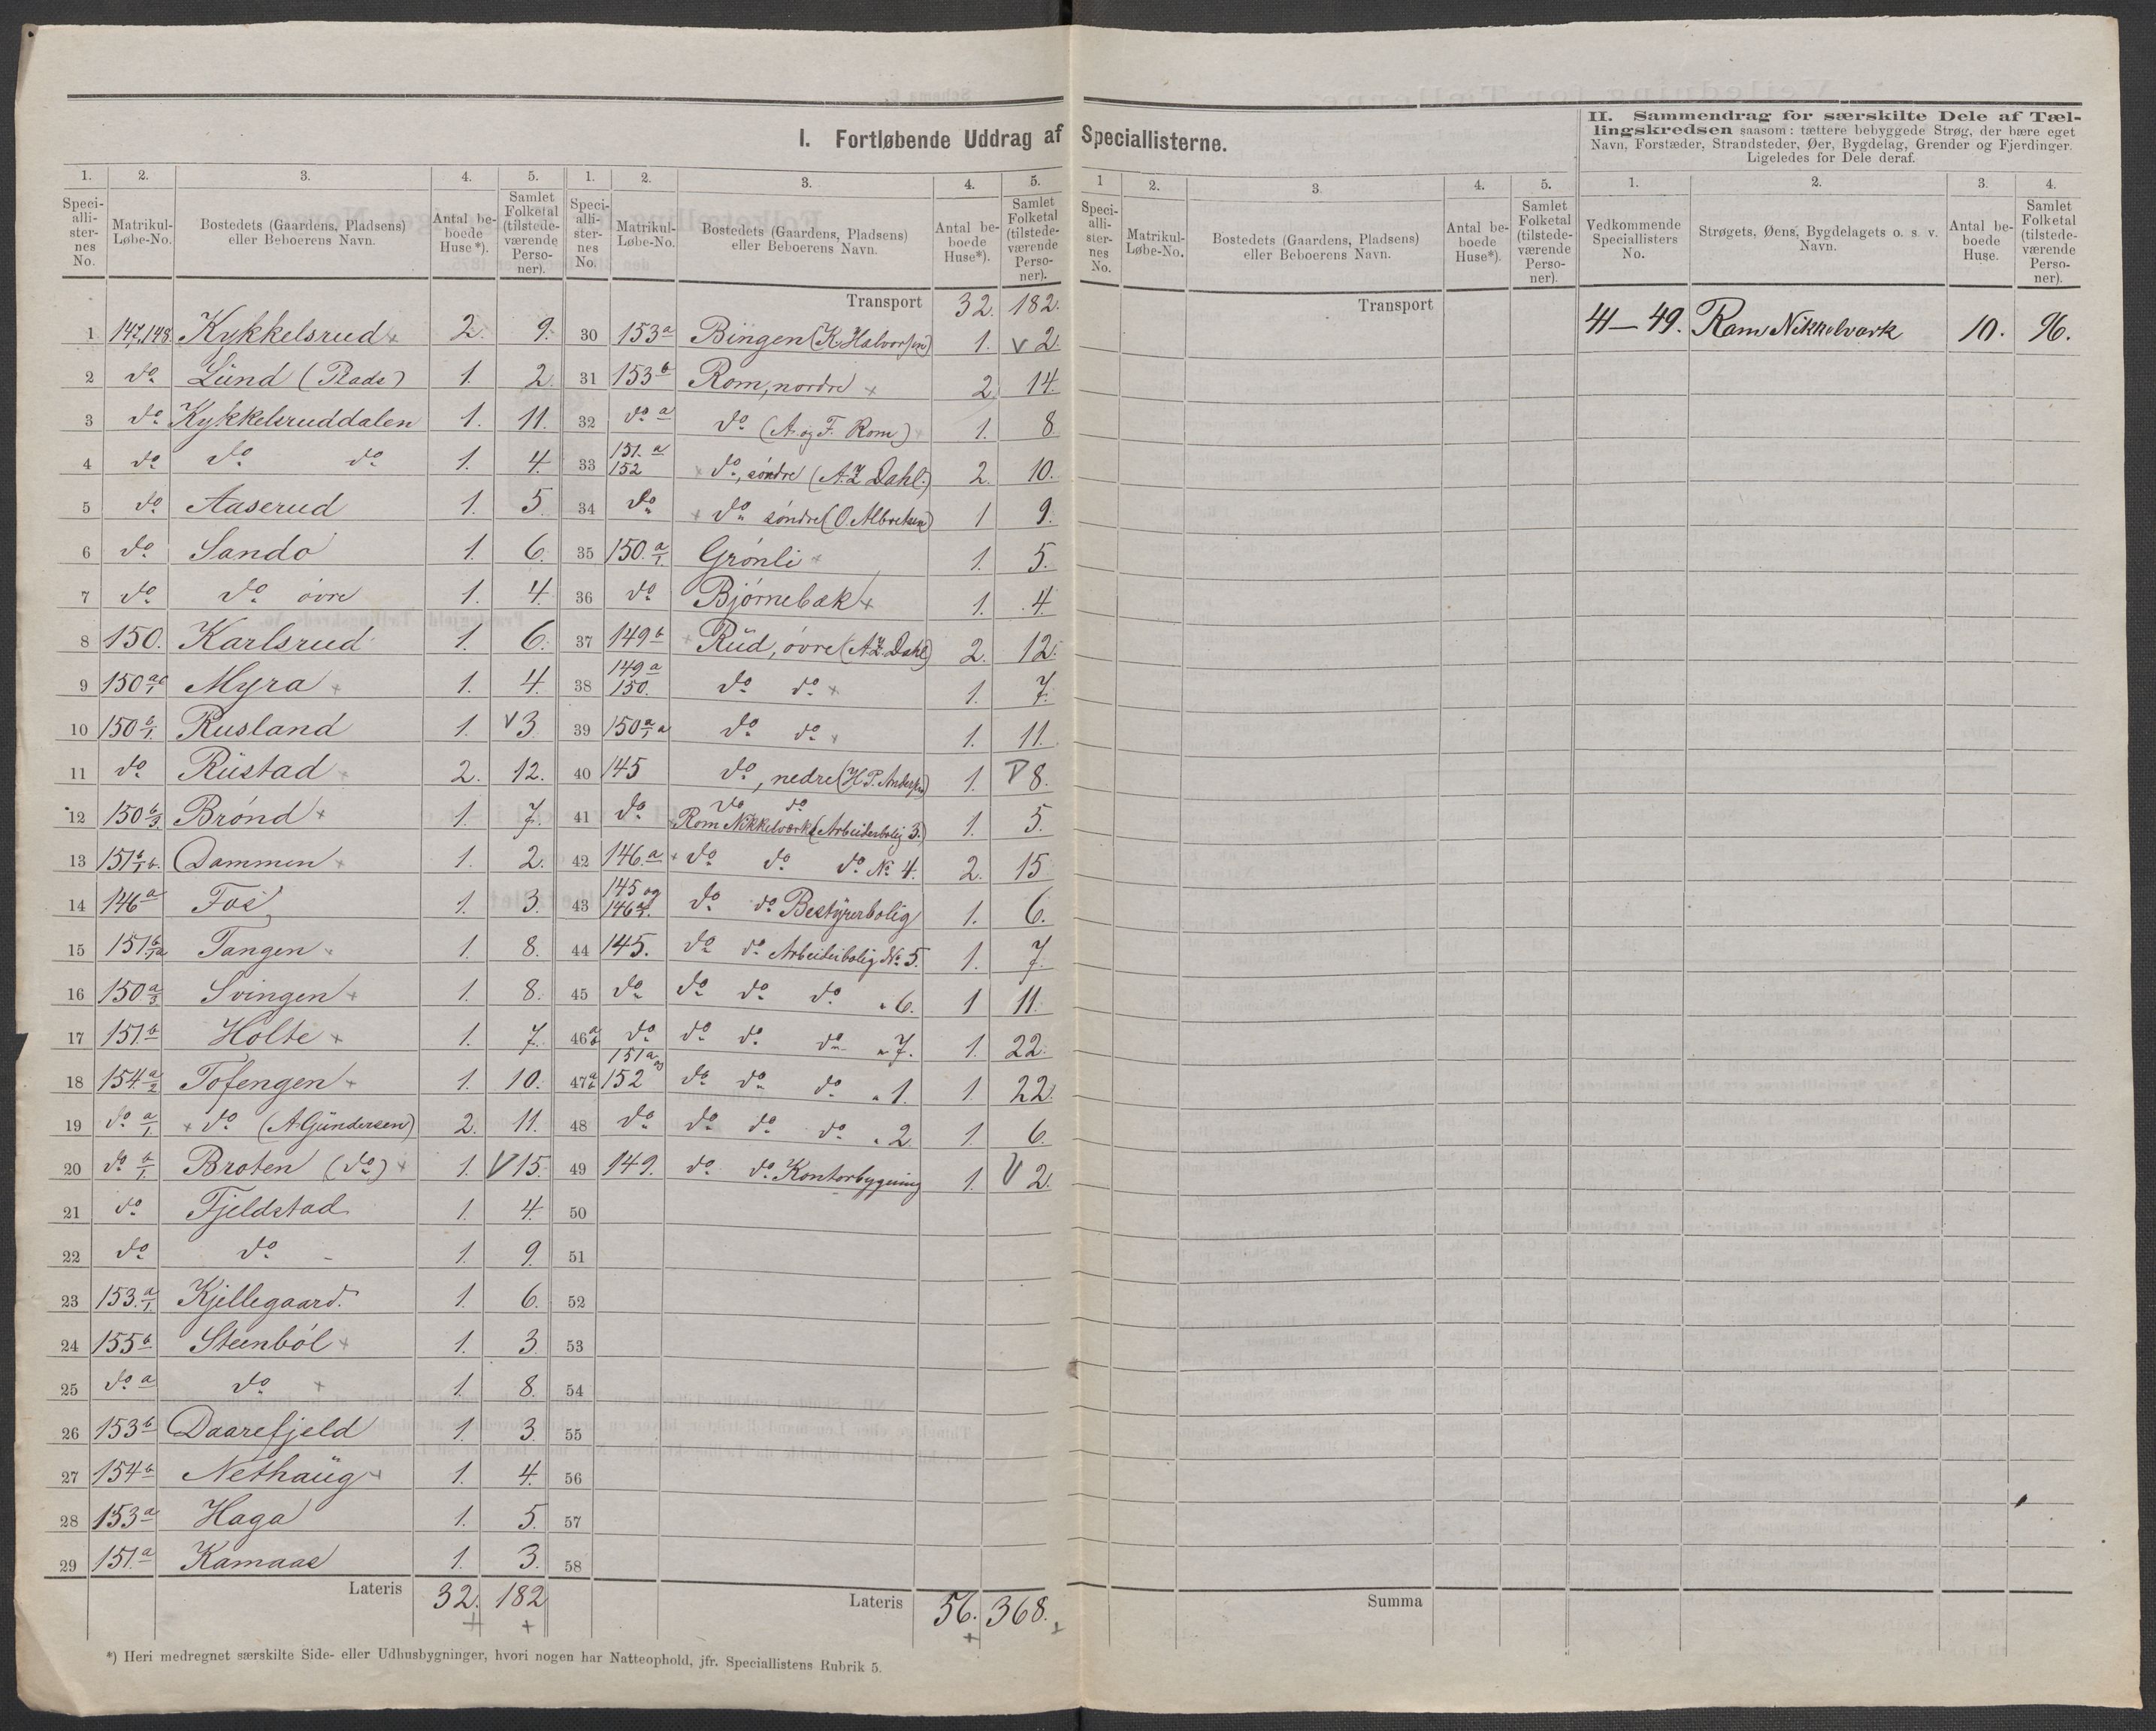 I. Fortløbende Uddrag af Speciallisterne.
1. 2. 3. 4. 5.
Speci-alli-ster-nes No. Matrikul-Løbe-No. Bostedets (Gaardens, Pladsens) eller Beboerens Navn. Antal be-boede Huse*). Samlet Folketal (tilstede-værende Perso-ner).
1 147,148. Kykkelsrud 2. 9.
2 do Lund (Plads) 1. 2.
3 do Kykkelsruddalen 1. 11.
4 do do do 1. 4.
5 do Aaserud 1. 5
6 do Sando 1. 6.
7 do do øvre 1. 4.
8 150. Karlsrud 1. 6.
9 150 Myra 1. 4.
10 150 b/1. Rusland 1. 3
11 do Rustad 2. 12.
12 150 b/3. Brønd 1. 7.
13 151 Dammen 1. 2.
14 146a Fos 1. 3.
15 151 Tangen 1. 8.
16 150 a/3 Svingen 1. 8.
17 151.b Holte 1. 7.
18 154. a/2 Tofengen 1. 10.
19 do a/1. do (A Gundersen) 2. 11.
20 do b/1. Broten (do) 1. 15.
21 do Fjeldstad 1. 4.
22 do do 1. 9.
23 153. a/1. Kjellegaard. 1. 6.
24 155b Steenbøl 1. 3
25 do a do 1. 8.
26 153b Daarefjeld 1. 3.
27 154b Nethaug 1. 4.
28 153a Haga 1. 5.
29 151.a Kamaas 1. 3.
Lateris 32. 182
1. 2. 3. 4. 5.
Speci-alli-ster-nes No. Matrikul-Løbe-No. Bostedets (Gaardens, Pladsens) eller Beboerens Navn. Antal be-boede Huse*). Samlet Folketal (tilstede-værende Perso-ner).
Transport 32. 182.
30 153a Bingen (K. Halvorsen) 1. 2.
31 153b Rom, nordre 2. 14.
32 do a do (A. og F. Rom) 1. 8.
33 151. a 152 do, søndre (A. Z Dahl.) 2. 10.
34 do do søndre (O. Albretsen) 1 9.
35 150. a/1. Grønli 1. 5.
36 do Bjørnebæk 1. 4.
37 149b Rud, øvre (A. Z. Dahl) 2. 12.
38 149a 150. do do 1. 7.
39 150 a/1 a do do 1. 11.
40 145 do, nedre (H P. Andersen) 1. 8.
41 do do do Rom Nikkelværk (Arbeiderbolig 3.) 1. 5.
42 146.a do do do No 4. 2. 15
43 145 og 146 do do Bestyrerbolig 1. 6.
44 145. do do Arbeiderbolig No. 5. 1. 7.
45 do do do do " 6. 1 11.
46 a b do do do do " 7. 1. 22.
47 a b 151a og 152 do do do " 1. 1 22.
48 do do do do " 2 1 6.
49 149. do do Kontorbygning 1. 2.
50
51
52
53
54
55
56
57
58
Lateris 56. 368.
1 2. 3. 4. 5.
Speci-alli-ster-nes No. Matrikul-Løbe-No. Bostedets (Gaardens, Pladsens) eller Beboerens Navn. Antal be-boede Huse*). Samlet Folketal (tilstede-værende Perso-ner).
Transport
Summa
II. Sammendrag for særskilte Dele af Tæl-
lingskredsen saasom: tættere bebyggede Strøg, der bære eget
Navn, Forstæder, Strandsteder, Øer, Bygdelag, Grender og Fjerdinger.
Ligeledes for Dele deraf.
1. 2. 3. 4.
Vedkommende Speciallisters No. Strøgets, Øens, Bygdelagets o. s. v. Navn. Antal be-boede Huse. Samlet Folketal (tilstede-værende Perso-ner).
41 — 49. Rom Nikkelværk 10. 96.
*) Heri medregnet særskilte Side- eller Udhusbygninger, hvori nogen har Natteophold, jfr. Speciallistens Rubrik 5.